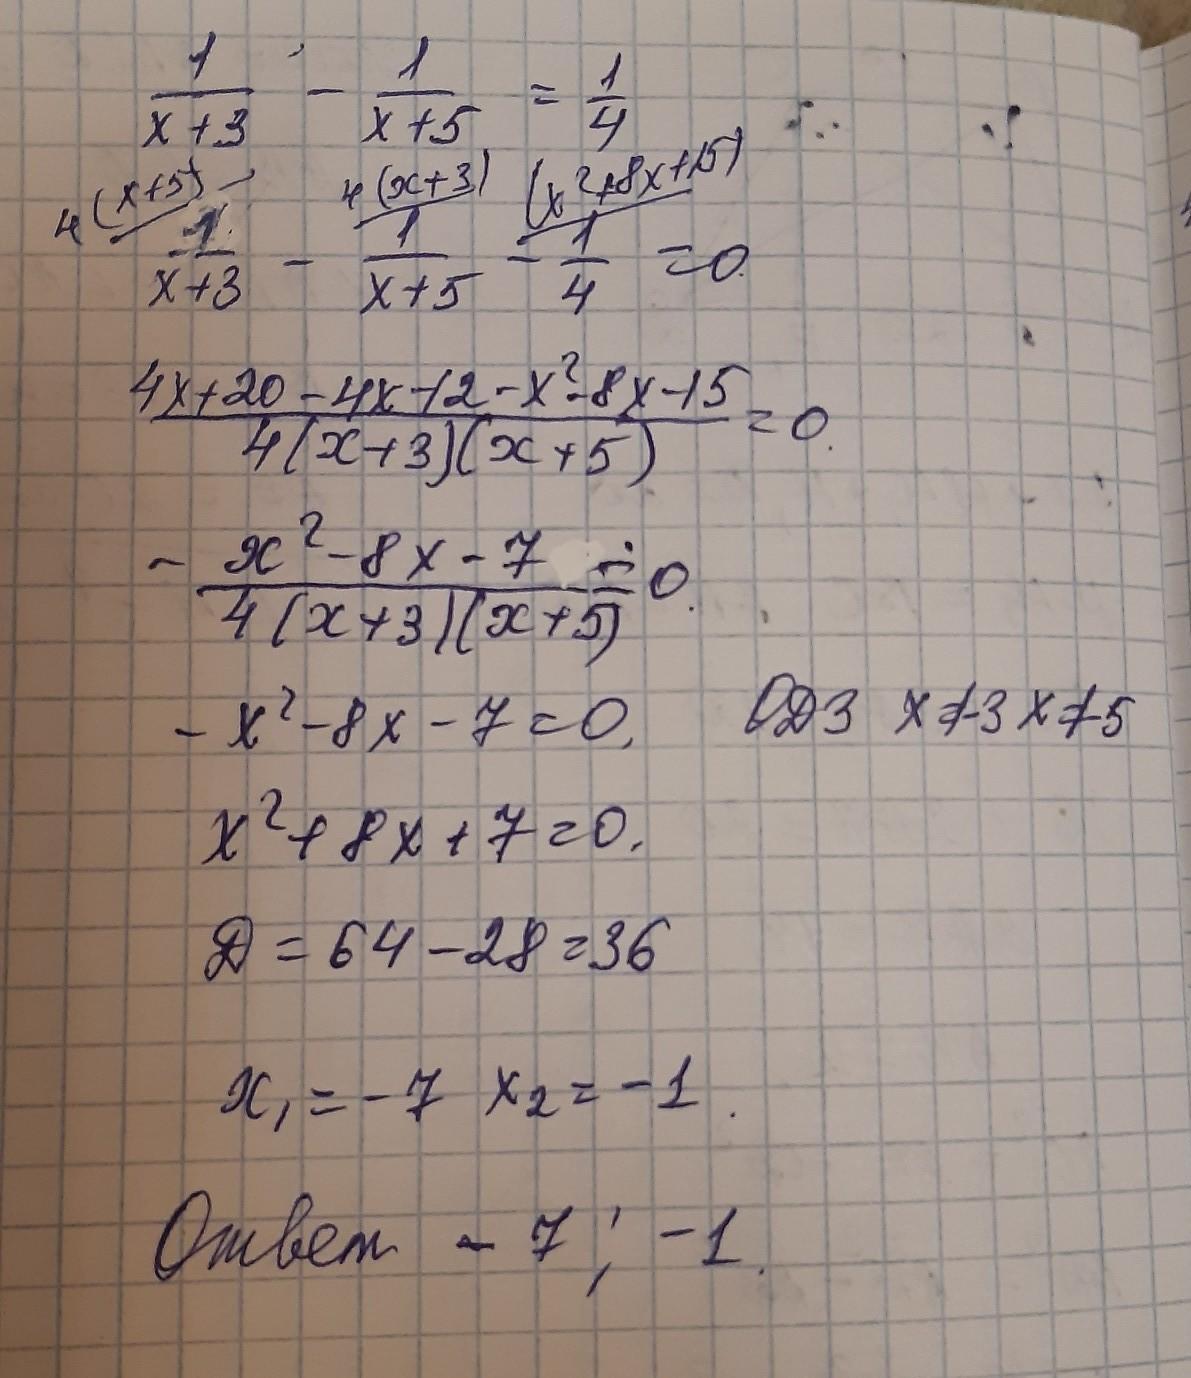 1/(x+3) - 1/(x+5) = 1/4
4(x+5) 4(x+3) (x²+8x+15)
1/(x+3) - 1/(x+5) - 1/4 = 0.
(4x+20-4x-12-x²-8x-15)/(4(x+3)(x+5)) = 0.
(-x²-8x-7)/(4(x+3)(x+5)) = 0.
-x²-8x-7=0, ОДЗ x≠-3 x≠-5
x²+8x+7=0.
D=64-28=36
x₁=-7 x₂=-1.
Ответ -7; -1.